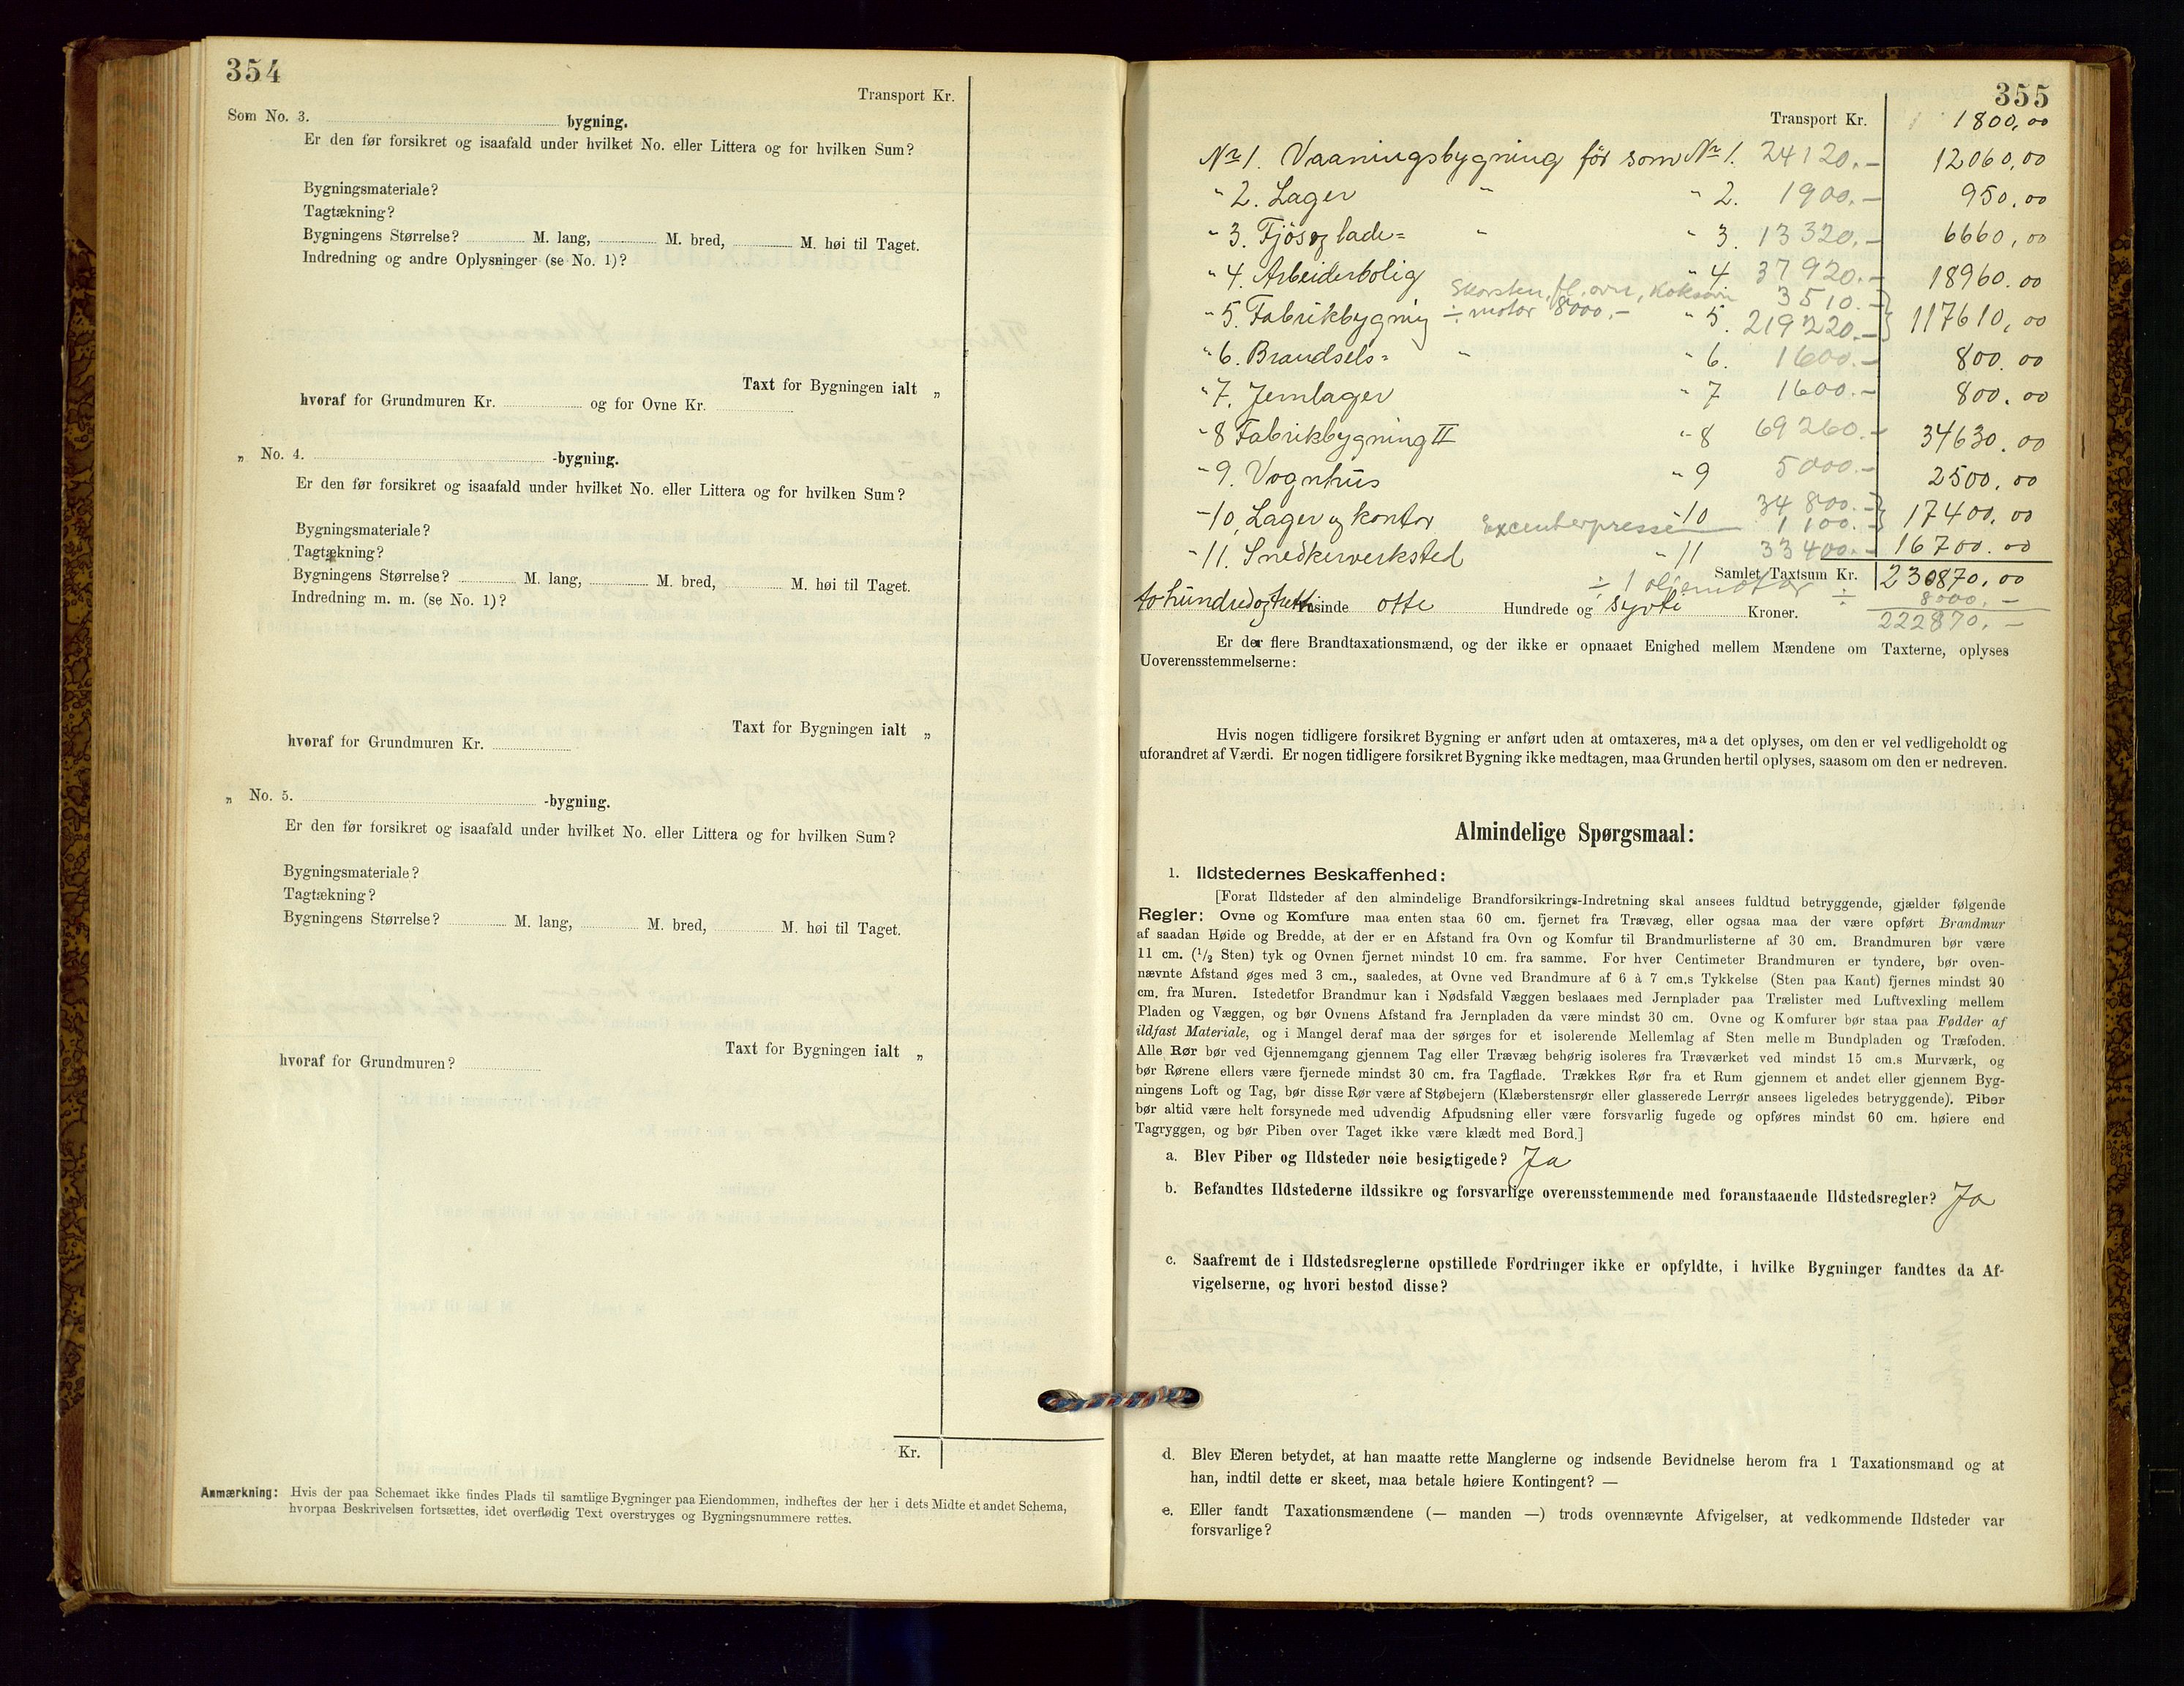 354
Transport Kr.
Som No. 3. bygning.
Er den før forsikret og isaafald under hvilket No. eller Littera og for hvilken Sum?
Bygningsmateriale?
Tagtækning?
Bygningens Størrelse? M. lang, M. bred, M. høi til Taget.
Indredning og andre Oplysninger (se No. 1)?
Taxt for Bygningen ialt „
hvoraf for Grundmuren Kr. og for Ovne Kr.
„ No. 4. -bygning.
Er den før forsikret og isaafald under hvilket No. eller Littera og for hvilken Sum?
Bygningsmateriale?
Tagtækning?
Bygningens Størrelse? M. lang, M. bred, M. høi til Taget.
Indredning m. m. (se No. 1)?
Taxt for Bygningen ialt „
hvoraf for Grundmuren Kr.
„ No. 5. -bygning.
Er den før forsikret og isaafald under hvilket No. eller Littera og for hvilken Sum?
Bygningsmateriale?
Tagtækning?
Bygningens Størrelse? M. lang, M. bred, M. høi til Taget.
Taxt for Bygningen ialt „
hvoraf for Grundmuren?
Kr.
Anmærkning: Hvis der paa Schemaet ikke findes Plads til samtlige Bygninger paa Eiendommen, indheftes der her i dets Midte et andet Schema,
hvorpaa Beskrivelsen fortsættes, idet overflødig Text overstryges og Bygningsnummere rettes.
355
Transport Kr. 1800,00
No 1. Vaaningsbygning för som No 1. 24120.- 12060,00
" 2. Lager " " 2. 1900.- 950,00
" 3. Fjös og lade= " " 3. 13320.- 6660,00
" 4. Arbeiderbolig " 4. 37920.- 18960.00
Skorsten, fl. ovn, Koksovn 3510.-
" 5. Fabrikbygning ÷ motor 8000.- " 5. 219220.- 117610,00
" 6. Brændsels= " " 6. 1600.- 800.00
" 7. Jernlager " 7 1600.- 800.00
" 8 Fabrikbygning II " 8 69260.- 34630.00
" 9. Vognhus " 9 5000.- 2500.00
" 10, Lager og kontor " 10 34800.- 17400.00
Excenterpresse 1100.-
" 11. Snedkerverksted " 11 33400.- 16700.00
Samlet Taxtsum Kr. 230870.00
÷ 1 oljemotor ÷ 8000.-
tohundredogtretti tusinde otte Hundrede og sytti Kroner.
222870.-
Er der flere Brandtaxationsmænd, og der ikke er opnaaet Enighed mellem Mændene om Taxterne, oplyses
Uoverensstemmelserne:
Hvis nogen tidligere forsikret Bygning er anført uden at omtaxeres, maa det oplyses, om den er vel vedligeholdt og
uforandret af Værdi. Er nogen tidligere forsikret Bygning ikke medtagen, maa Grunden hertil oplyses, saasom om den er nedreven.
Almindelige Spørgsmaal:
1. Ildstedernes Beskaffenhed:
[Forat Ildsteder af den almindelige Brandforsikrings-Indretning skal ansees fuldtud betryggende, gjælder følgende
Regler: Ovne og Komfure maa enten staa 60 cm. fjernet fra Trævæg, eller ogsaa maa der være opført Brandmur
af saadan Høide og Bredde, at der er en Afstand fra Ovn og Komfur til Brandmurlisterne af 30 cm. Brandmuren bør være
11 cm. (1/2 Sten) tyk og Ovnen fjernet mindst 10 cm. fra samme. For hver Centimeter Brandmuren er tyndere, bør oven-
nævnte Afstand øges med 3 cm., saaledes, at Ovne ved Brandmure af 6 à 7 cm.s Tykkelse (Sten paa Kant) fjernes mindst 20
cm. fra Muren. Istedetfor Brandmur kan i Nødsfald Væggen beslaaes med Jernplader paa Trælister med Luftvexling mellem
Pladen og Væggen, og bør Ovnens Afstand fra Jernpladen da være mindst 30 cm. Ovne og Komfurer bør staa paa Fødder af
ildfast Materiale, og i Mangel deraf maa der sørges for et isolerende Mellemlag af Sten mellem Bundpladen og Træfoden.
Alle Rør bør ved Gjennemgang gjennem Tag eller Trævæg behørig isoleres fra Træværket ved mindst 15 cm.s Murværk, og
bør Rørene ellers være fjernede mindst 30 cm. fra Tagflade. Trækkes Rør fra et Rum gjennem et andet eller gjennem Byg-
ningens Loft og Tag, bør disse Rør være af Støbejern (Klæberstensrør eller glasserede Lerrør ansees ligeledes betryggende). Piber
bør altid være helt forsynede med udvendig Afpudsning eller være forsvarlig fugede og opføres mindst 60 cm. høiere end
Tagryggen, og bør Piben over Taget ikke være klædt med Bord.]
a. Blev Piber og Ildsteder nøie besigtigede? Ja
b. Befandtes Ildstederne ildssikre og forsvarlige overensstemmende med foranstaaende Ildstedsregler? Ja
c. Saafremt de i Ildstedsreglerne opstillede Fordringer ikke er opfyldte, i hvilke Bygninger fandtes da Af-
vigelserne, og hvori bestod disse?
d. Blev Eieren betydet, at han maatte rette Manglerne og indsende Bevidnelse herom fra 1 Taxationsmand og at
han, indtil dette er skeet, maa betale høiere Kontingent? —
e. Eller fandt Taxationsmændene (— manden —) trods ovennævnte Afvigelser, at vedkommende Ildsteder var
forsvarlige?